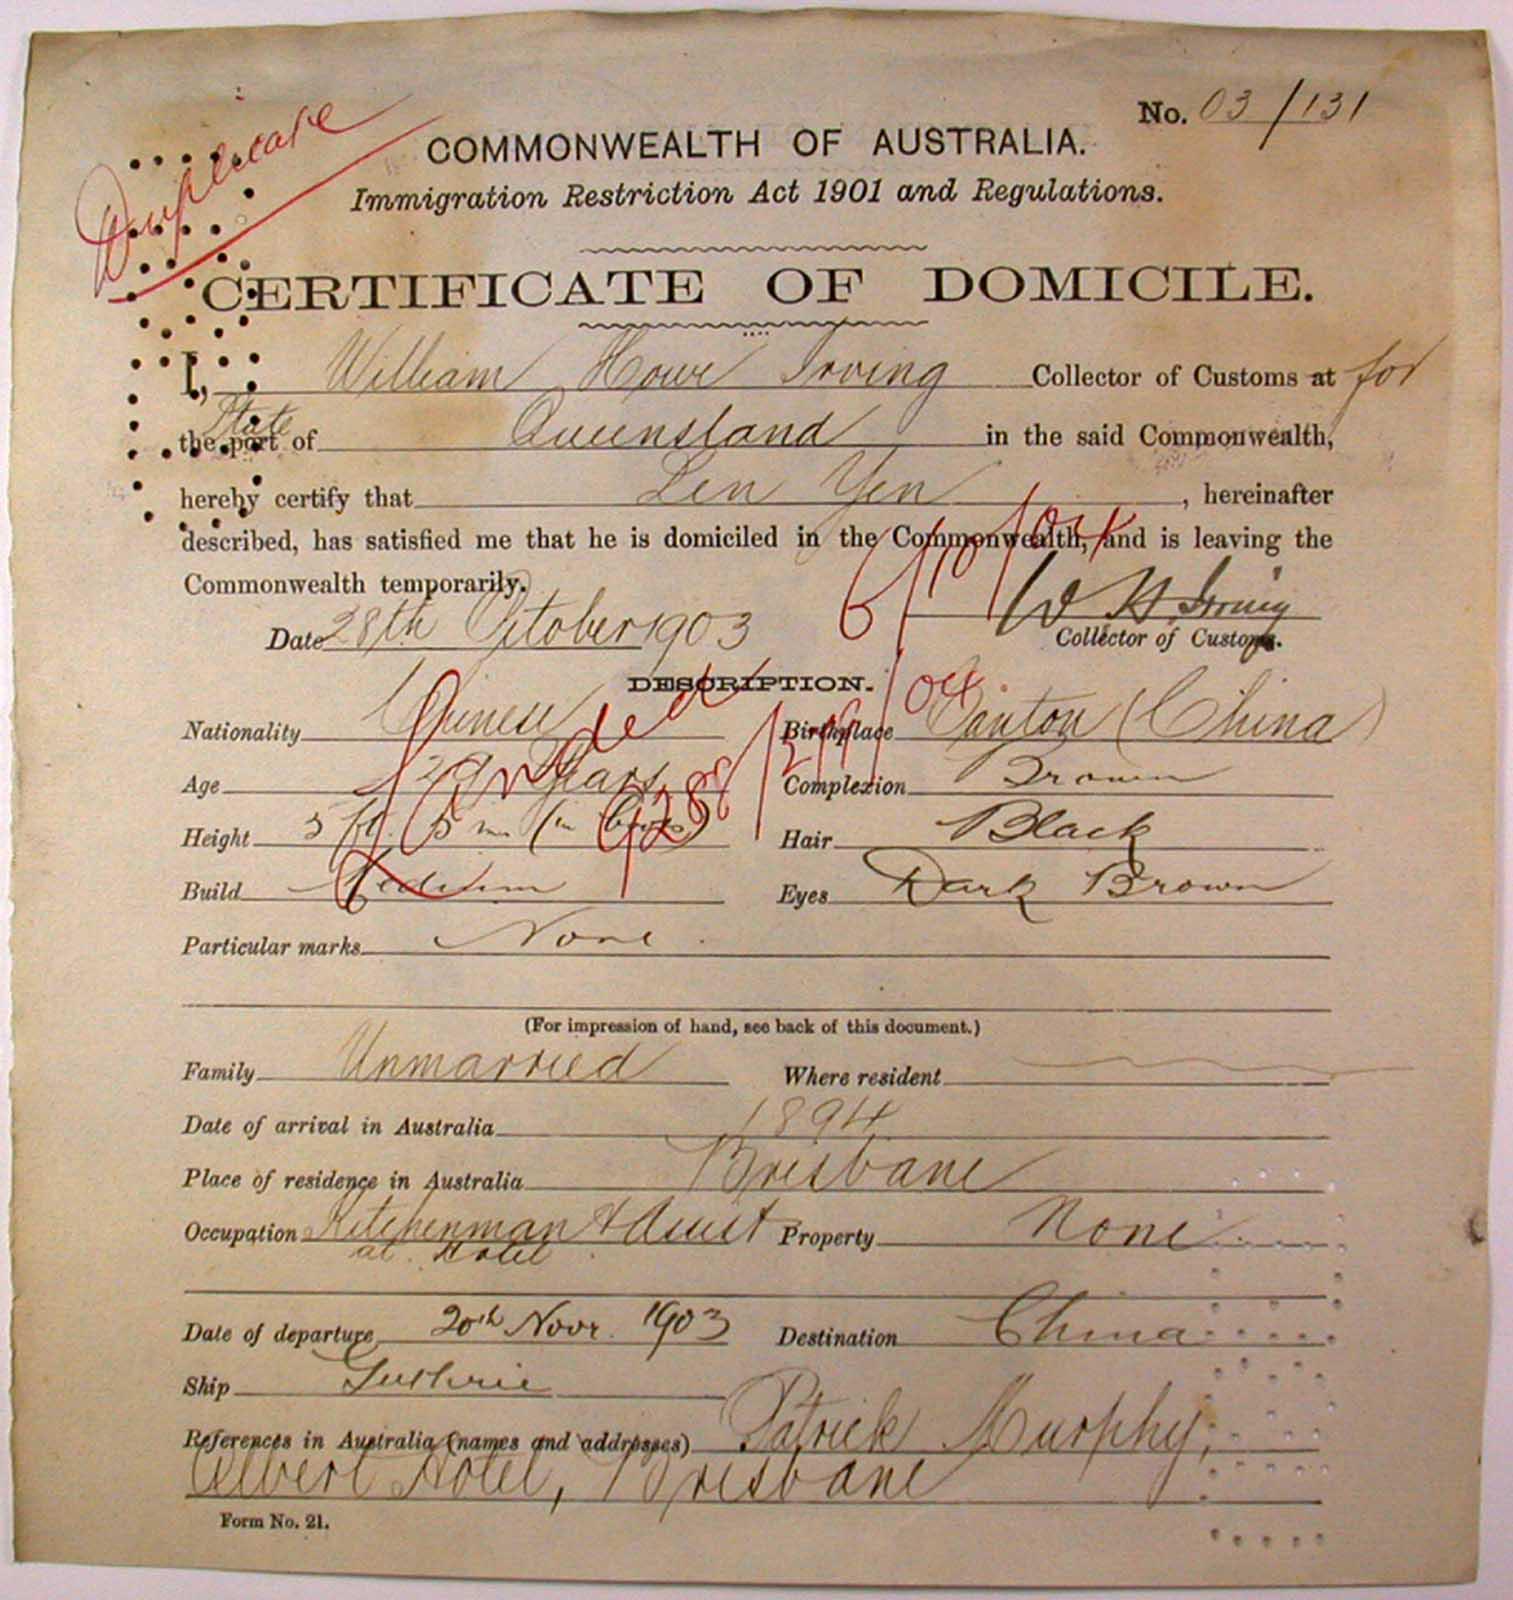 No. 03/131
Duplicate
COMMONWEALTH OF AUSTRALIA.
Immigration Restriction Act 1901 and Regulations.
CERTIFICATE OF DOMICILE.
I, William Howe Irving Collector of Customs at for
State
the port of Queensland in the said Commonwealth,
hereby certify that Len Yen, hereinafter
described, has satisfied me that he is domiciled in the Commonwealth, and is leaving the
Commonwealth temporarily.
6/10/04
W H Irving
Date 28th October 1903
Collector of Customs.
DESCRIPTION.
Landed
Nationality Chinese Birthplace Canton (China)
Age 29 Years Complexion Brown
Height 5 ft 5 in (in boots) Hair Black
Build Medium Eyes Dark Brown
Particular marks None.
(For impression of hand, see back of this document.)
Family Unmarried Where resident
Date of arrival in Australia 1894
Place of residence in Australia Brisbane
Occupation Kitchenman & Assist Property None
at Hotel
Date of departure 20th Novr. 1903 Destination China
Ship Guthrie
References in Australia (names and addresses) Patrick Murphy,
Albert Hotel, Brisbane
Form No. 21.